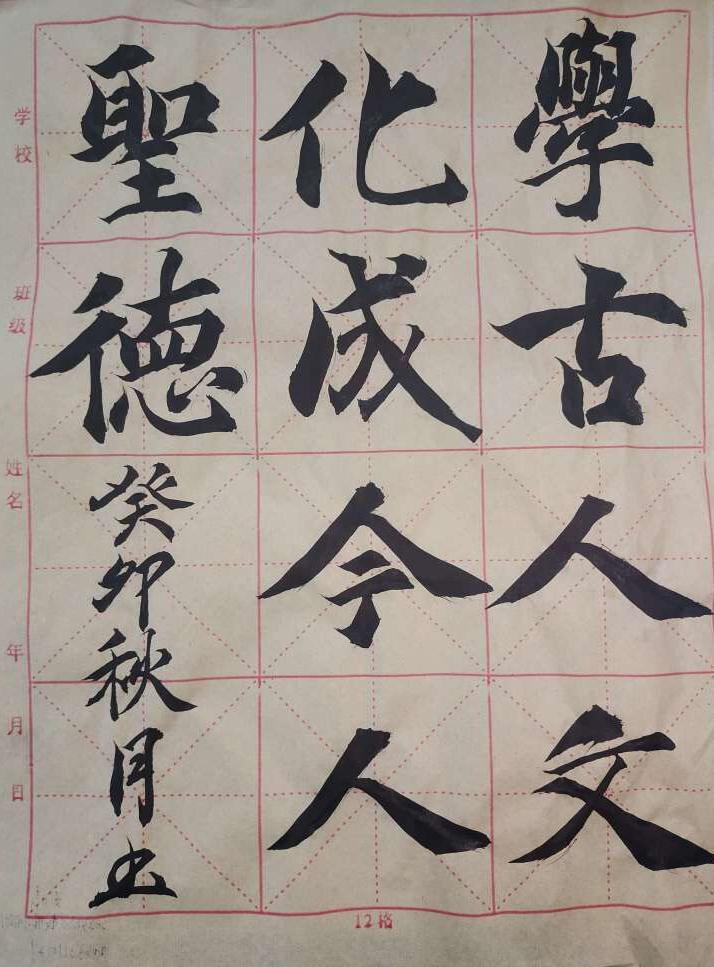 學古人文
化成今人
聖德
癸卯秋月书
学校
班级
姓名
年
月
日
12格